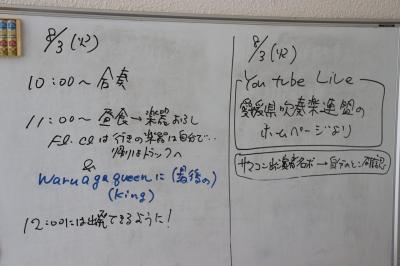 8/3(火)
10:00〜 合奏
11:00〜 昼食→楽器おろし
Fl. Cl は行きの楽器は自分で…
帰りはトラックへ
&
Waruaga queenに(最後の)
(King)
12:00には出発できるように!
8/3(火)
You tube Live
愛媛県吹奏楽連盟の
ホームページより
サマコン出演者名ボ→自分のところ確認